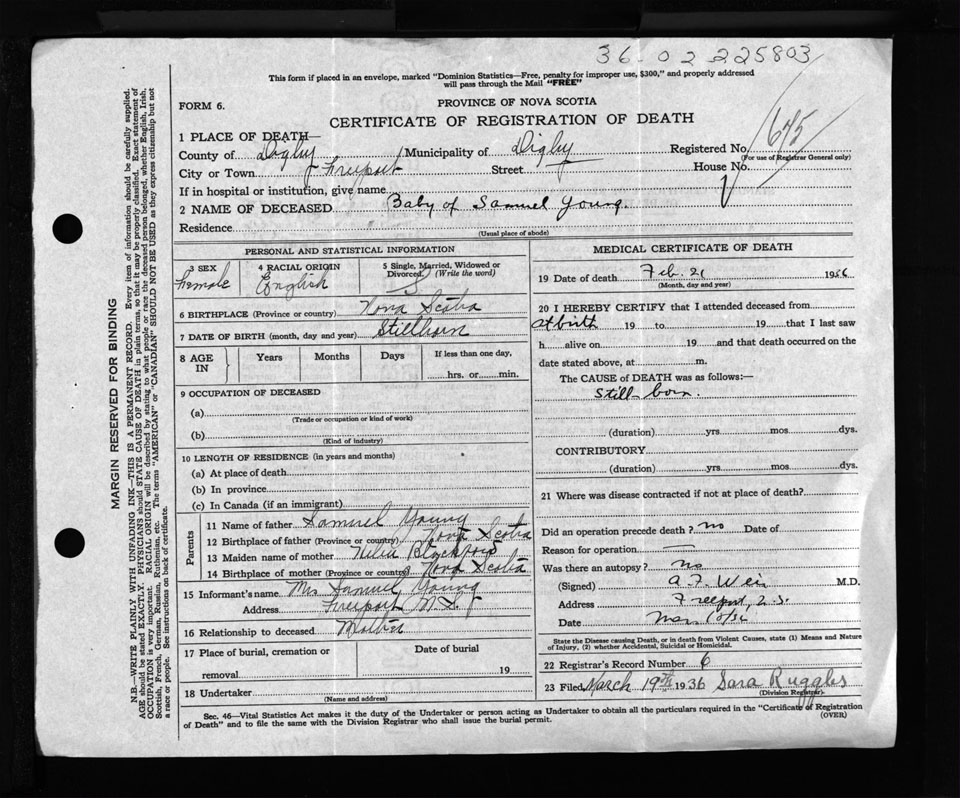 36 02 225803
This form if placed in an envelope, marked "Dominion Statistics—Free, penalty for improper use, $300," and properly addressed
will pass through the Mail "FREE"
FORM 6.
PROVINCE OF NOVA SCOTIA
CERTIFICATE OF REGISTRATION OF DEATH
1 PLACE OF DEATH—
County of Digby Municipality of Digby Registered No. 675
(For use of Registrar General only)
City or Town Freeport Street House No.
If in hospital or institution, give name
2 NAME OF DECEASED Baby of Samuel Young
Residence
(Usual place of abode)
PERSONAL AND STATISTICAL INFORMATION
3 SEX Female
4 RACIAL ORIGIN English
5 Single, Married, Widowed or Divorced. (Write the word) S
6 BIRTHPLACE (Province or country) Nova Scotia
7 DATE OF BIRTH (month, day and year) Stillborn
8 AGE IN Years Months Days If less than one day, hrs. or min.
9 OCCUPATION OF DECEASED
(a)
(Trade or occupation or kind of work)
(b)
(Kind of industry)
10 LENGTH OF RESIDENCE (in years and months)
(a) At place of death
(b) In province
(c) In Canada (if an immigrant)
Parents
11 Name of father Samuel Young
12 Birthplace of father (Province or country) Nova Scotia
13 Maiden name of mother Blackford
14 Birthplace of mother (Province or country) Nova Scotia
15 Informant's name Mrs Samuel Young
Address Freeport N.S.
16 Relationship to deceased Mother
17 Place of burial, cremation or removal
Date of burial
19
18 Undertaker
(Name and address)
MEDICAL CERTIFICATE OF DEATH
19 Date of death Feb. 21 1936
(Month, day and year)
20 I HEREBY CERTIFY that I attended deceased from
At birth 19 to 19 that I last saw
h alive on 19 and that death occurred on the
date stated above, at m.
The CAUSE OF DEATH was as follows:—
Still born.
(duration) yrs. mos. dys.
CONTRIBUTORY
(duration) yrs. mos. dys.
21 Where was disease contracted if not at place of death?
Did an operation precede death? no Date of
Reason for operation —
Was there an autopsy? no
(Signed) A.F. Weir M.D.
Address Freeport, N.S.
Date Mar 10/36
State the Disease causing Death, or in death from Violent Causes, state (1) Means and Nature
of Injury, (2) whether Accidental, Suicidal or Homicidal.
22 Registrar's Record Number 6
23 Filed March 19th 1936 Sara Ruggles
(Division Registrar)
Sec. 46—Vital Statistics Act makes it the duty of the Undertaker or person acting as Undertaker to obtain all the particulars required in the "Certificate of Registration
of Death" and to file the same with the Division Registrar who shall issue the burial permit.
(OVER)
MARGIN RESERVED FOR BINDING
N.B.—WRITE PLAINLY WITH UNFADING INK—THIS IS A PERMANENT RECORD. Every item of information should be carefully supplied.
AGE should be stated EXACTLY. PHYSICIANS should STATE CAUSE OF DEATH in plain terms, so that it may be properly classified. Exact statement of
OCCUPATION is very important. RACIAL ORIGIN will be described by stating to what people or race the deceased person belonged, whether English, Irish,
Scottish, French, German, Russian, Ruthenian, etc. The terms "AMERICAN" or "CANADIAN" SHOULD NOT BE USED as they express citizenship but not
a race or people. See instructions on back of certificate.